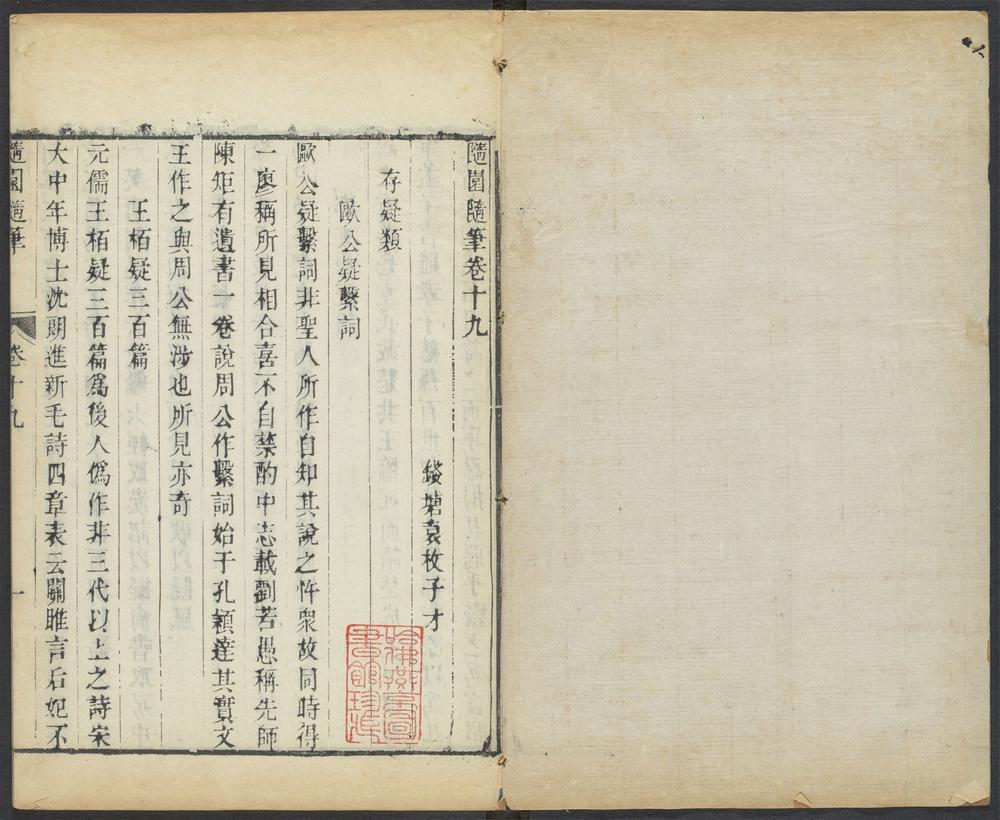 隨園隨筆卷十九
錢塘袁枚子才
存疑類
歐公疑繫詞
歐公疑繫詞非聖人所作自知其說之忤衆故同時得
一廖稱所見相合喜不自禁酌中志載劉若愚稱先師
陳矩有遺書一卷說周公作繫詞始于孔穎達其實文
王作之與周公無涉也所見亦奇
王栢疑三百篇
元儒王栢疑三百篇爲後人僞作非三代以上之詩宋
大中年博士沈朗進新毛詩四章表云關雎言后妃不
隨園隨筆 卷十九 一
哈佛燕京圖書館珍藏